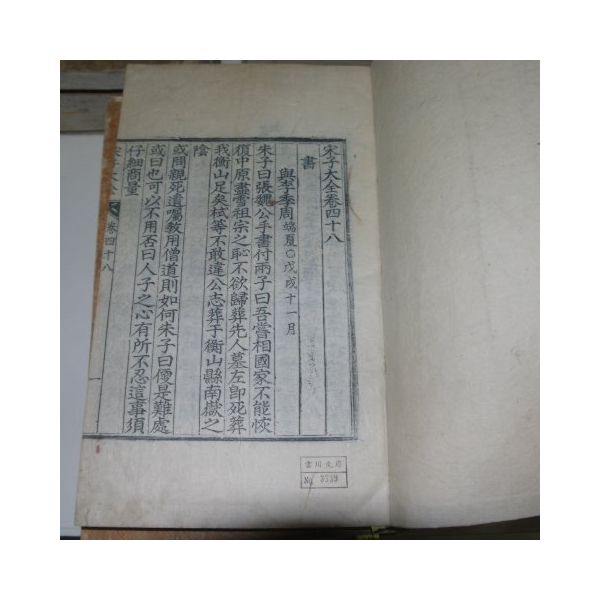 宋子大全卷四十八
書
與李季周 端夏○戊戌十一月
朱子曰張魏公手書付兩子曰吾嘗相國家不能恢
復中原盡雪祖宗之恥不欲歸葬先人墓左卽死葬
我衡山足矣栻等不敢違公志葬于衡山縣南嶽之
陰
或問親死遺囑敎用僧道則如何朱子曰便是難處
或曰也可以不用否曰人子之心有所不忍這事須
仔細商量
宋子大全
卷四十八
一
No 3339